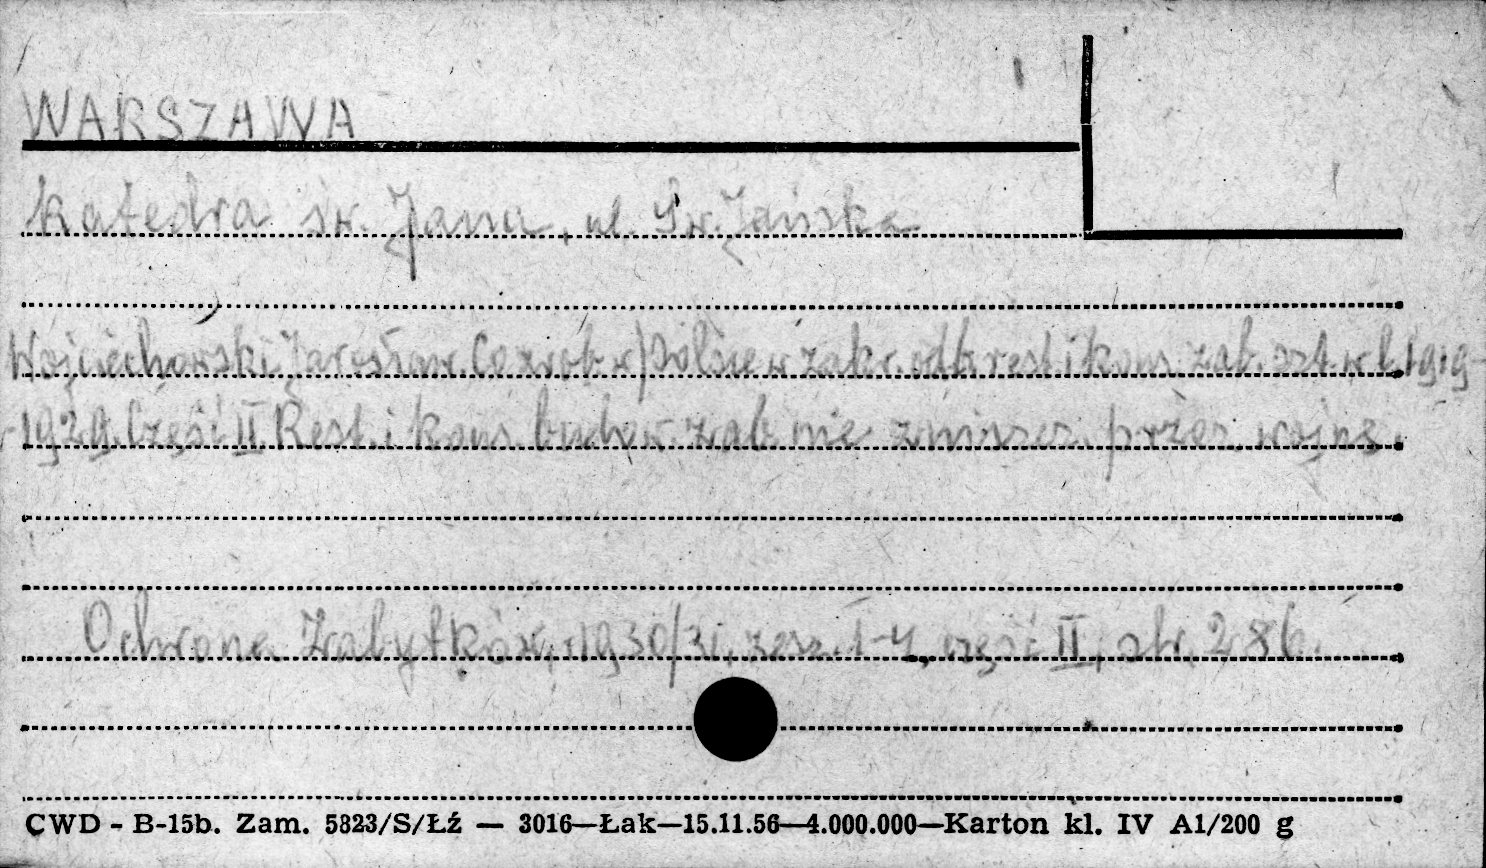 WARSZAWA
Katedra św. Jana, ul. Św. Jańska
Wojciechowski Jarosław. Co zrob. w Polsce w zakr. odb. rest i kons. zab. szt. w l. 1919-
-1929. Część II Rest. i kons. budow. zab. nie zniszcz. przez wojnę.
Ochrona Zabytków, 1930/31, zesz. 1-4, część II, str. 286.
CWD - B-15b. Zam. 5823/S/Łź — 3016—Łak—15.11.56—4.000.000—Karton kl. IV A1/200 g